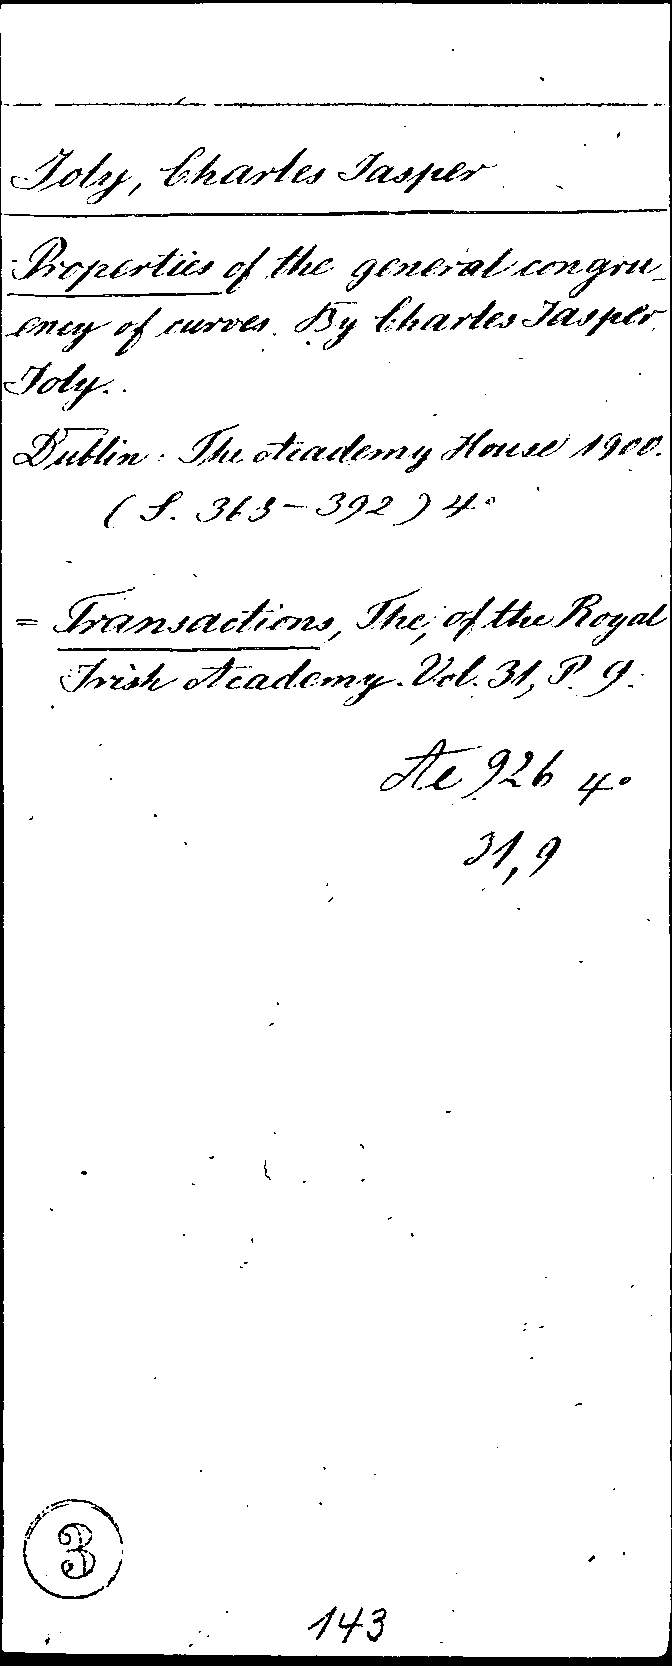 Joly, Charles Jasper
Properties of the general congru-
ency of curves. By Charles Jasper
Joly.
Dublin: The Academy House 1900.
(S. 363-392) 4°
= Transactions, The, of the Royal
Irish Academy. Vol. 31, P. 9.
Ae 926 4°
31,9
3
143